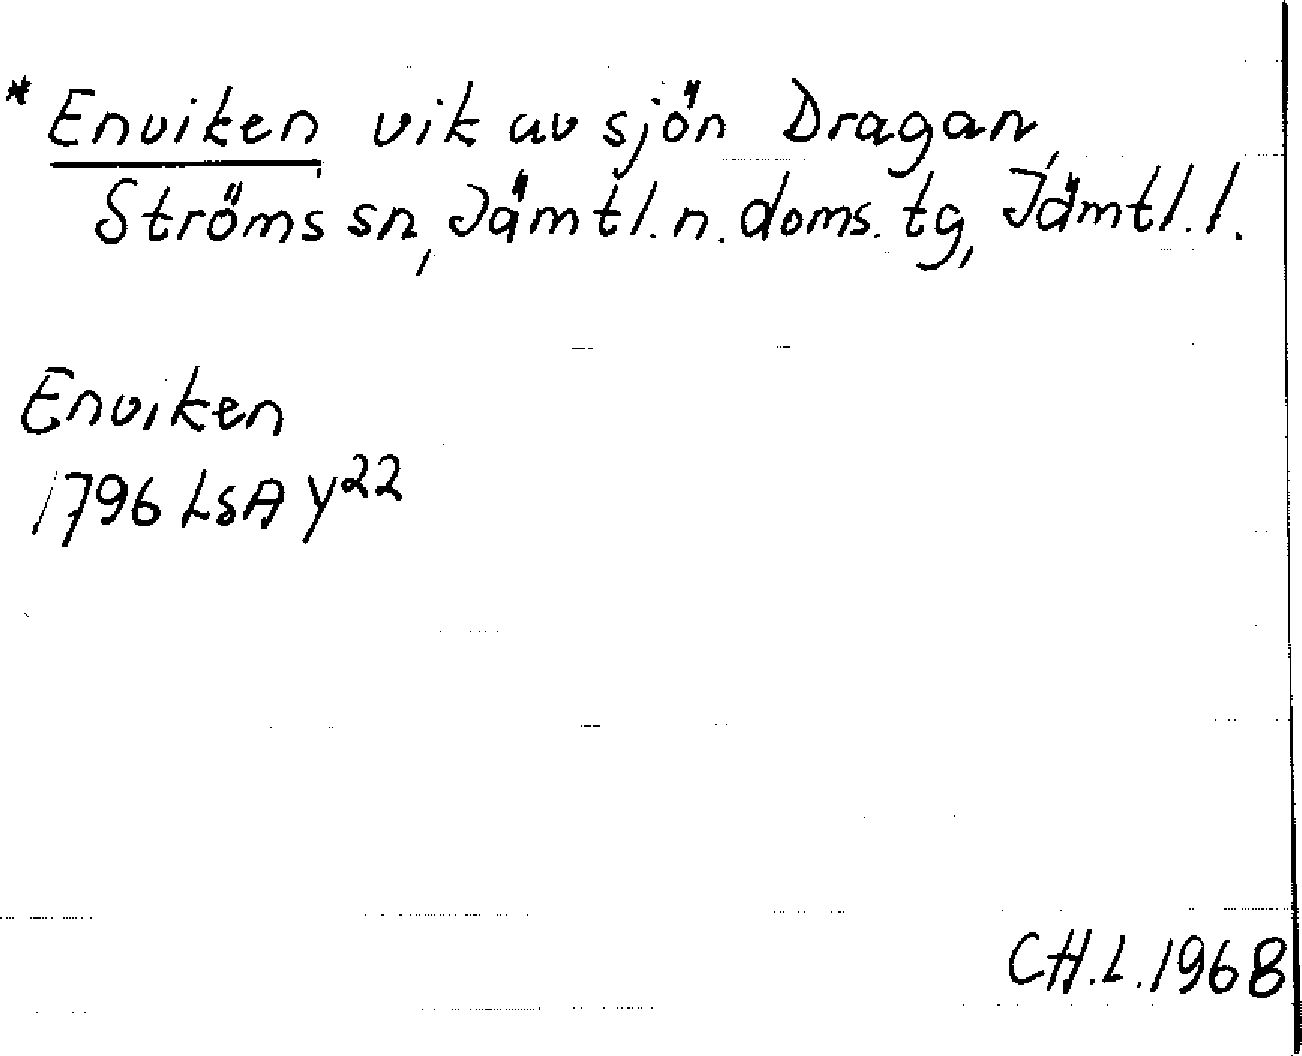 * Enviken vik av sjön Dragan,
Ströms sn, Jämtl. n. doms. tg, Jämtl. l.
Enviken
1796 LSA Y22
CH.L. 1968